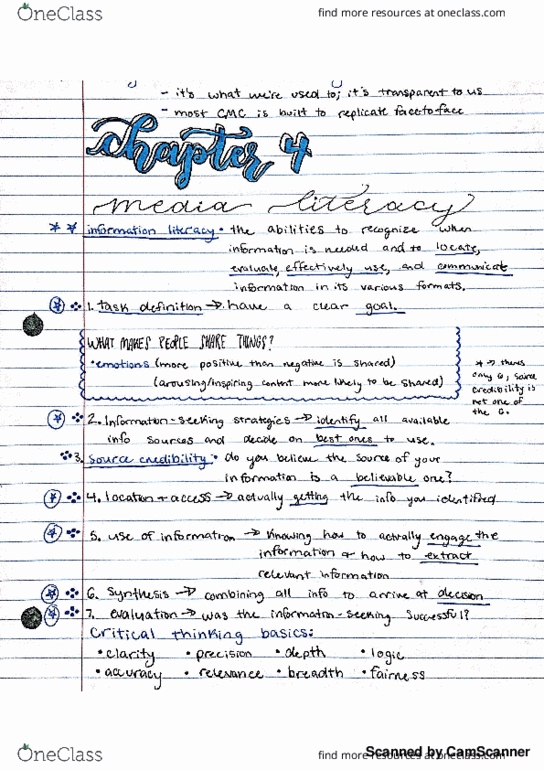 OneClass
find more resources at oneclass.com
- it's what we're used to; it's transparent to us
- most CMC is built to replicate face to face
chapter 4
media literacy
information literacy • the abilities to recognize when
information is needed and to locate,
evaluate, effectively use, and communicate
information in its various formats.
1. task definition → have a clear goal.
WHAT MAKES PEOPLE SHARE THINGS?
• emotions (more positive than negative is shared)
(arousing/inspiring content more likely to be shared)
* → theres
only 6, source
credibility is
not one of
the 6.
2. Information-seeking strategies → identify all available
info sources and decide on best ones to use.
3. Source credibility • do you believe the source of your
information is a believable one?
4. location + access → actually getting the info you identified
5. use of information → knowing how to actually engage the
information + how to extract
relevant information
6. Synthesis → combining all info to arrive at decision
7. evaluation → was the information-seeking successful?
Critical thinking basics:
• clarity • precision • depth • logic
• accuracy • relevance • breadth • fairness
OneClass
find more resources at oneclass.com
Scanned by CamScanner